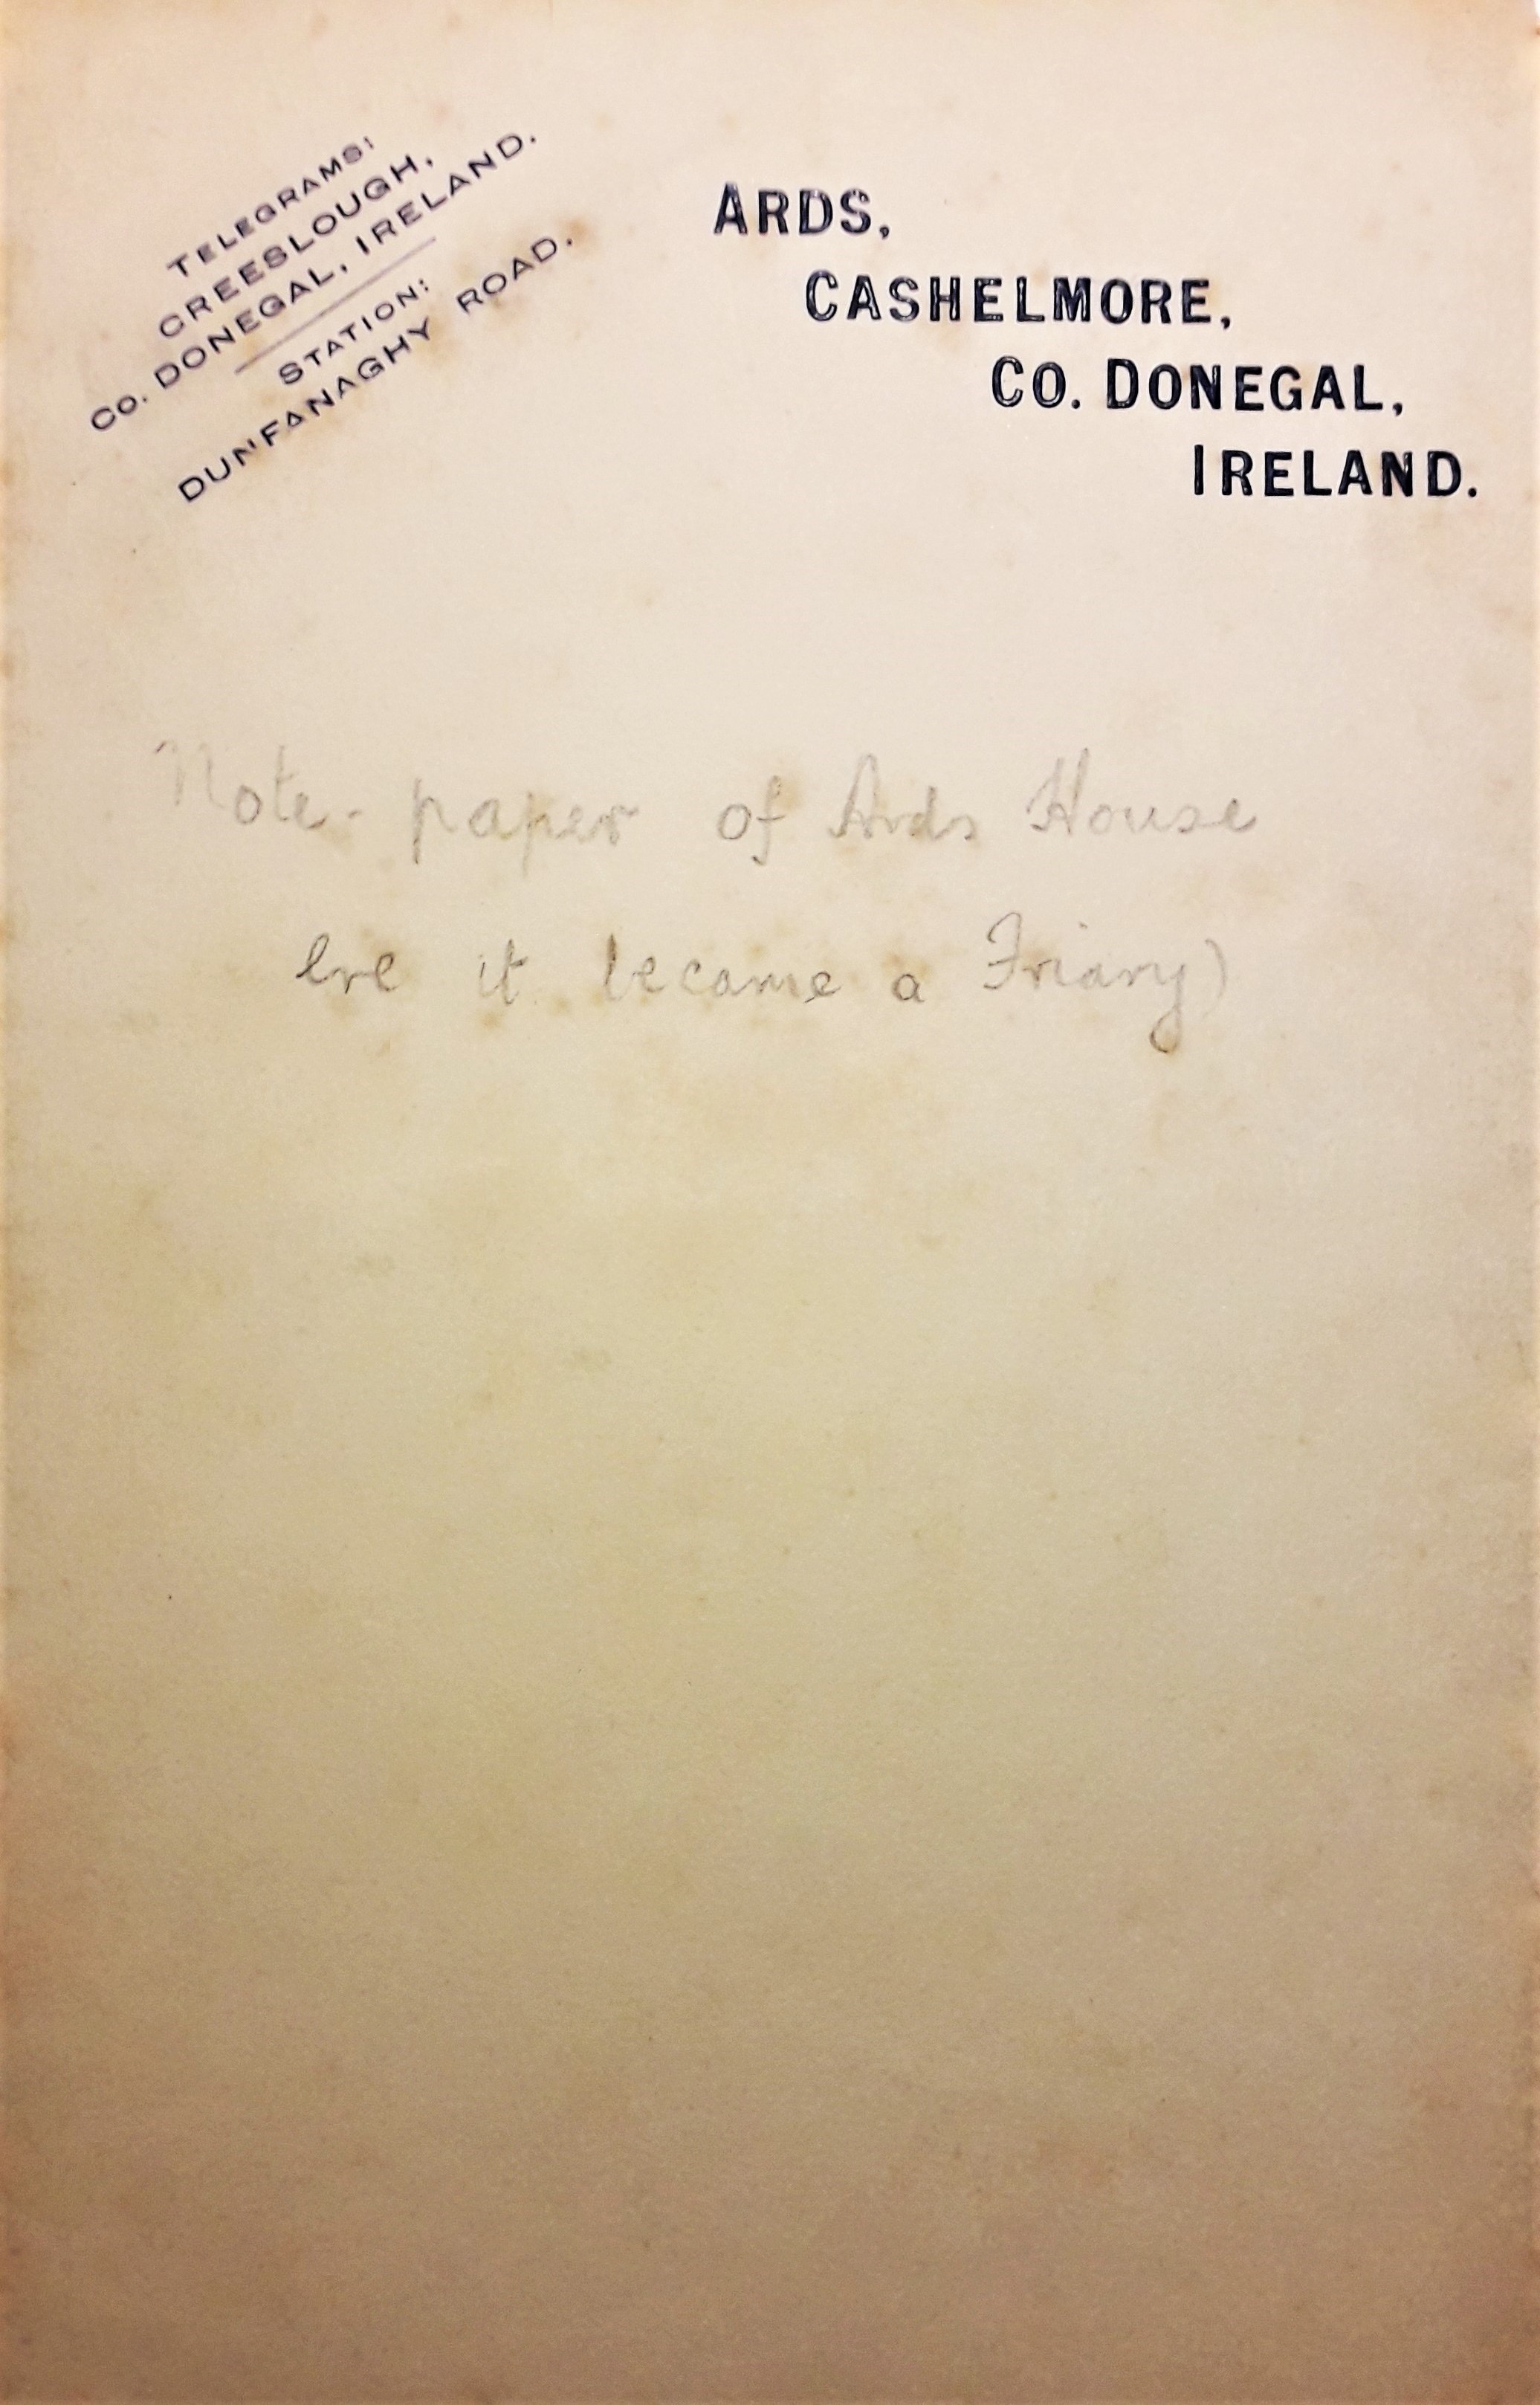 TELEGRAMS:
CREESLOUGH,
CO. DONEGAL, IRELAND.
STATION:
DUNFANAGHY ROAD.
ARDS,
CASHELMORE,
CO. DONEGAL,
IRELAND.
Note-paper of Ards House
ere it became a Friary)